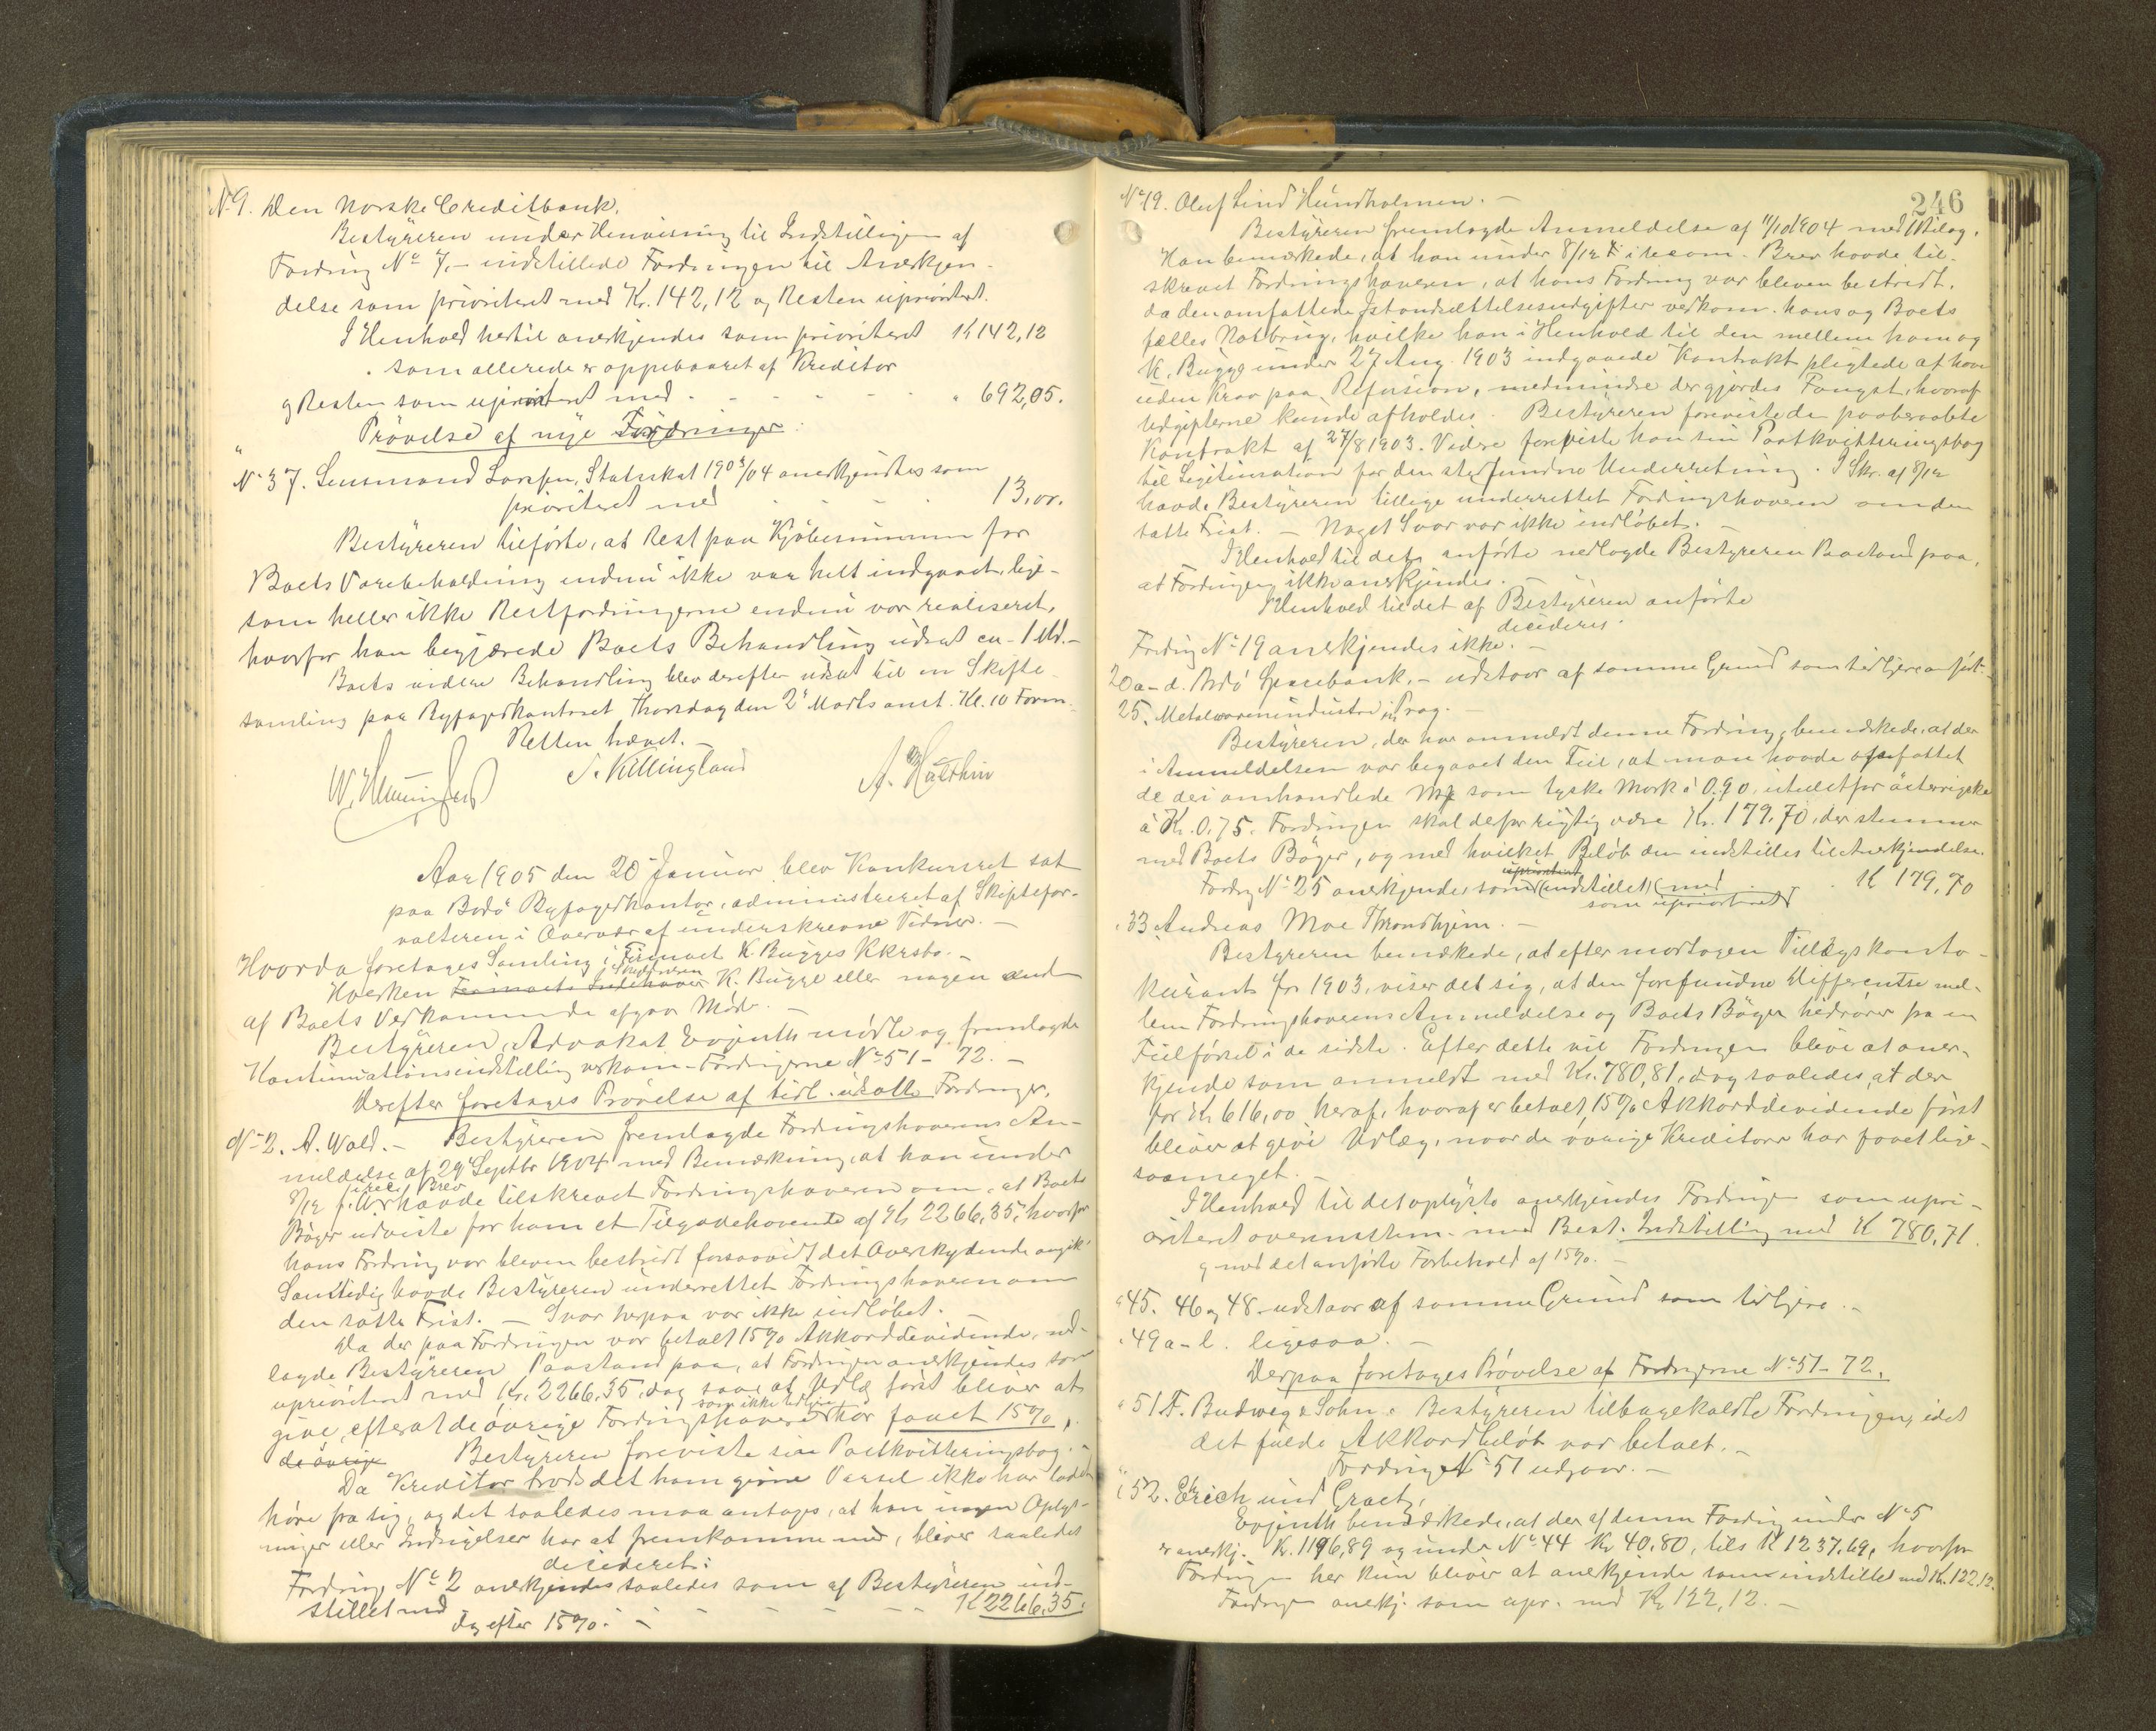 No 9. Den Norske Creditbank.
Bestyreren under Henvisning til Indstillingen af
Fordring No 7, – indstillede Fordringen til Anerkjen-
delse som prioriteret med Kr. 142,12 og Resten uprioriteret.
I Henhold hertil anerkjendes som prioriteret K 142,12
som allerede er oppebaaret af Kreditor
og Resten som uprioriteret med - - - - " 692,05.
Prøvelse af nye Fordringer.
No 37. Lensmand Larsen, Statsskat 1903/04 anerkjendtes som
prioriteret med - - - 13,00.
Bestyreren tilførte, at Rest paa Kjøbesummen for
Boets Varebeholdning endnu ikke var helt indgaaet, lige-
som heller ikke Restfordringerne endnu var realiseret,
hvorfor han begjærede Boets Behandling udsat ca. 1 Md. –
Boets videre Behandling blev derefter udsat til en Skifte-
samling paa Byfogedkontoret Thorsdag den 2' Marts anst. Kl. 10 Form.
Retten hævet. –
S. Killingland
Aar 1905 den 20 Januar blev Konkursret sat
paa Bodø Byfogedkontor, administreret af Skiftefor-
valteren i Overvær af underskrevne Vidner. –
Hvorda foretages Samling i Firmaet K. Bugges Kkrsbo. –
Skyldneren
Hverken Firmaets Indehaver K. Bugge eller nogen and
af Boets Vedkommende afgav Møde. –
Bestyreren, Advokat Evjenth mødte og fremlagde
Kontinuationsindstilling vedkom. Fordringerne No 51 – 72. –
Derefter foretages Prøvelse af tidl. udsatte Fordringer.
No 2. A. Wold. – Bestyreren fremlagde Fordringshaverens An-
meldelse af 29' Septbr 1904 med Bemærkning, at han under
i rec. Brev
8/12 f. A. havde tilskrevet Fordringshaveren om, at Boets
Bøger udviste for ham et Tilgodehavende af Kr 2266,35, hvorfor
hans Fordring var bleven bestridt forsaavidt det Overskydende angik.
Samtidig havde Bestyreren underrettet Fordringshaveren om
den satte Frist. – Svar herpaa var ikke indløbet. –
Da der paa Fordringen var betalt 15% Akkorddevidende, ned-
lagde Bestyreren Paastand paa, at Fordringen anerkjendes som
uprioriteret med Kr. 2266,35, dog saa, at Udlæg først bliver at
som ikke tidligere
give, efterat de øvrige Fordringshavere har faaet 15%,
de øvrige Bestyreren foreviste sin Postkvitteringsbog. –
Da Kreditor trods det ham givne Varsel ikke har ladet
høre fra sig, og det saaledes maa antages, at han ingen Oplys-
ninger eller Indsigelser har at fremkomme med, bliver saaledes
decideret:
Fordring No 2 anerkjendes saaledes som af Bestyreren ind-
stillet med - - - - - K 2266,35.
dog efter 15%. –
246
No 19. Oluf Lind Hundholmen. –
Bestyreren fremlagde Anmeldelse af 11/10 1904 med 1 Bilag.
Han bemærkede, at han under 8/12 i recom. Brev havde til-
skrevet Fordringshaveren, at hans Fordring var bleven bestridt,
da den omfattede Istandsættelsesudgifter vedkom. hans og Boets
fælles Notbrug, hvilke han i Henhold til den mellem ham og
K. Bugge under 27 Aug. 1903 indgaaede Kontrakt pligtede at have
uden Krav paa Refusion, medmindre der gjordes Fangst, hvoraf
Udgifterne kunde afholdes. Bestyreren foreviste den paaberaabte
Kontrakt af 27/8 1903. Videre foreviste han sin Postkvitteringsbog
til Legitimation for den stedfundne Underretning. I Skr. af 8/12
havde Bestyreren tillige underrettet Fordringshaveren om den
satte Frist. – Noget Svar var ikke indløbet. –
I Henhold til det anførte nedlagde Bestyreren Paastand paa,
at Fordringen ikke anerkjendes. –
I Henhold til det af Bestyreren anførte
decideres:
Fordring No 19 anerkjendes ikke. –
20 a – d. Bodø Sparebank. – udstaar af samme Grund som tidligere anført. –
25. Metalwarenindustrie in Prag. –
Bestyreren, der har anmeldt denne Fordring, bemærkede, at der
i Anmeldelsen var begaaet den Feil, at man havde opfattet
de deri omhandlede Mk som tyske Mark à 0.90, istedetfor østerrigske
à Kr. 0,75. Fordringen skal derfor rigtig være Kr. 179,70, der stemmer
med Boets Bøger, og med hvilket Beløb den indstilles til Anerkjendelse.
uprioriteret
Fordrg No 25 anerkjendes som (indstillet) (med . . K 179,70
som uprioriteret)
33 Andreas Moe Throndhjem. –
Bestyreren bemærkede, at efter modtagen Tillægskonto-
kurant for 1903, viser det sig, at den forefundne Differentse mel-
lem Fordringshaverens Anmeldelse og Boets Bøger hidrører fra en
Feilførsel i de sidste. Efter dette vil Fordringen blive at aner-
kjende som anmeldt med Kr. 780,81, dog saaledes, at der
for Kr 616,00 heraf, hvoraf er betalt 15% Akkorddevidende først
bliver at give Udlæg, naar de øvrige Kreditorer har faaet lige-
saameget. –
I Henhold til det oplyste anerkjendes Fordringen som upri-
oriteret overensstem. med Best. Indstilling med K 780,71.
og med det anførte Forbehold af 15%. –
45. 46 og 48 udstaar af samme Grund som tidligere. –
49 a – l. ligesaa. –
Derpaa foretages Prøvelse af Fordringerne No 51 – 72.
51 F. Budweg & Sohn. Bestyreren tilbagekaldte Fordringen, idet
det fulde Akkordbeløb var betalt. –
Fordring No 51 udgaar. –
52. Ehrich und Graetz,
Evjenth bemærkede, at der af denne Fordring under No 5
er anerkj. Kr. 1196,89 og under No 44 Kr 40,80, tils K 1237,69, hvorfor
Fordringen her kun bliver at anerkjende som indstillet med Kr. 122,12.
Fordringen anerkj. som upr. med Kr 122,12. –